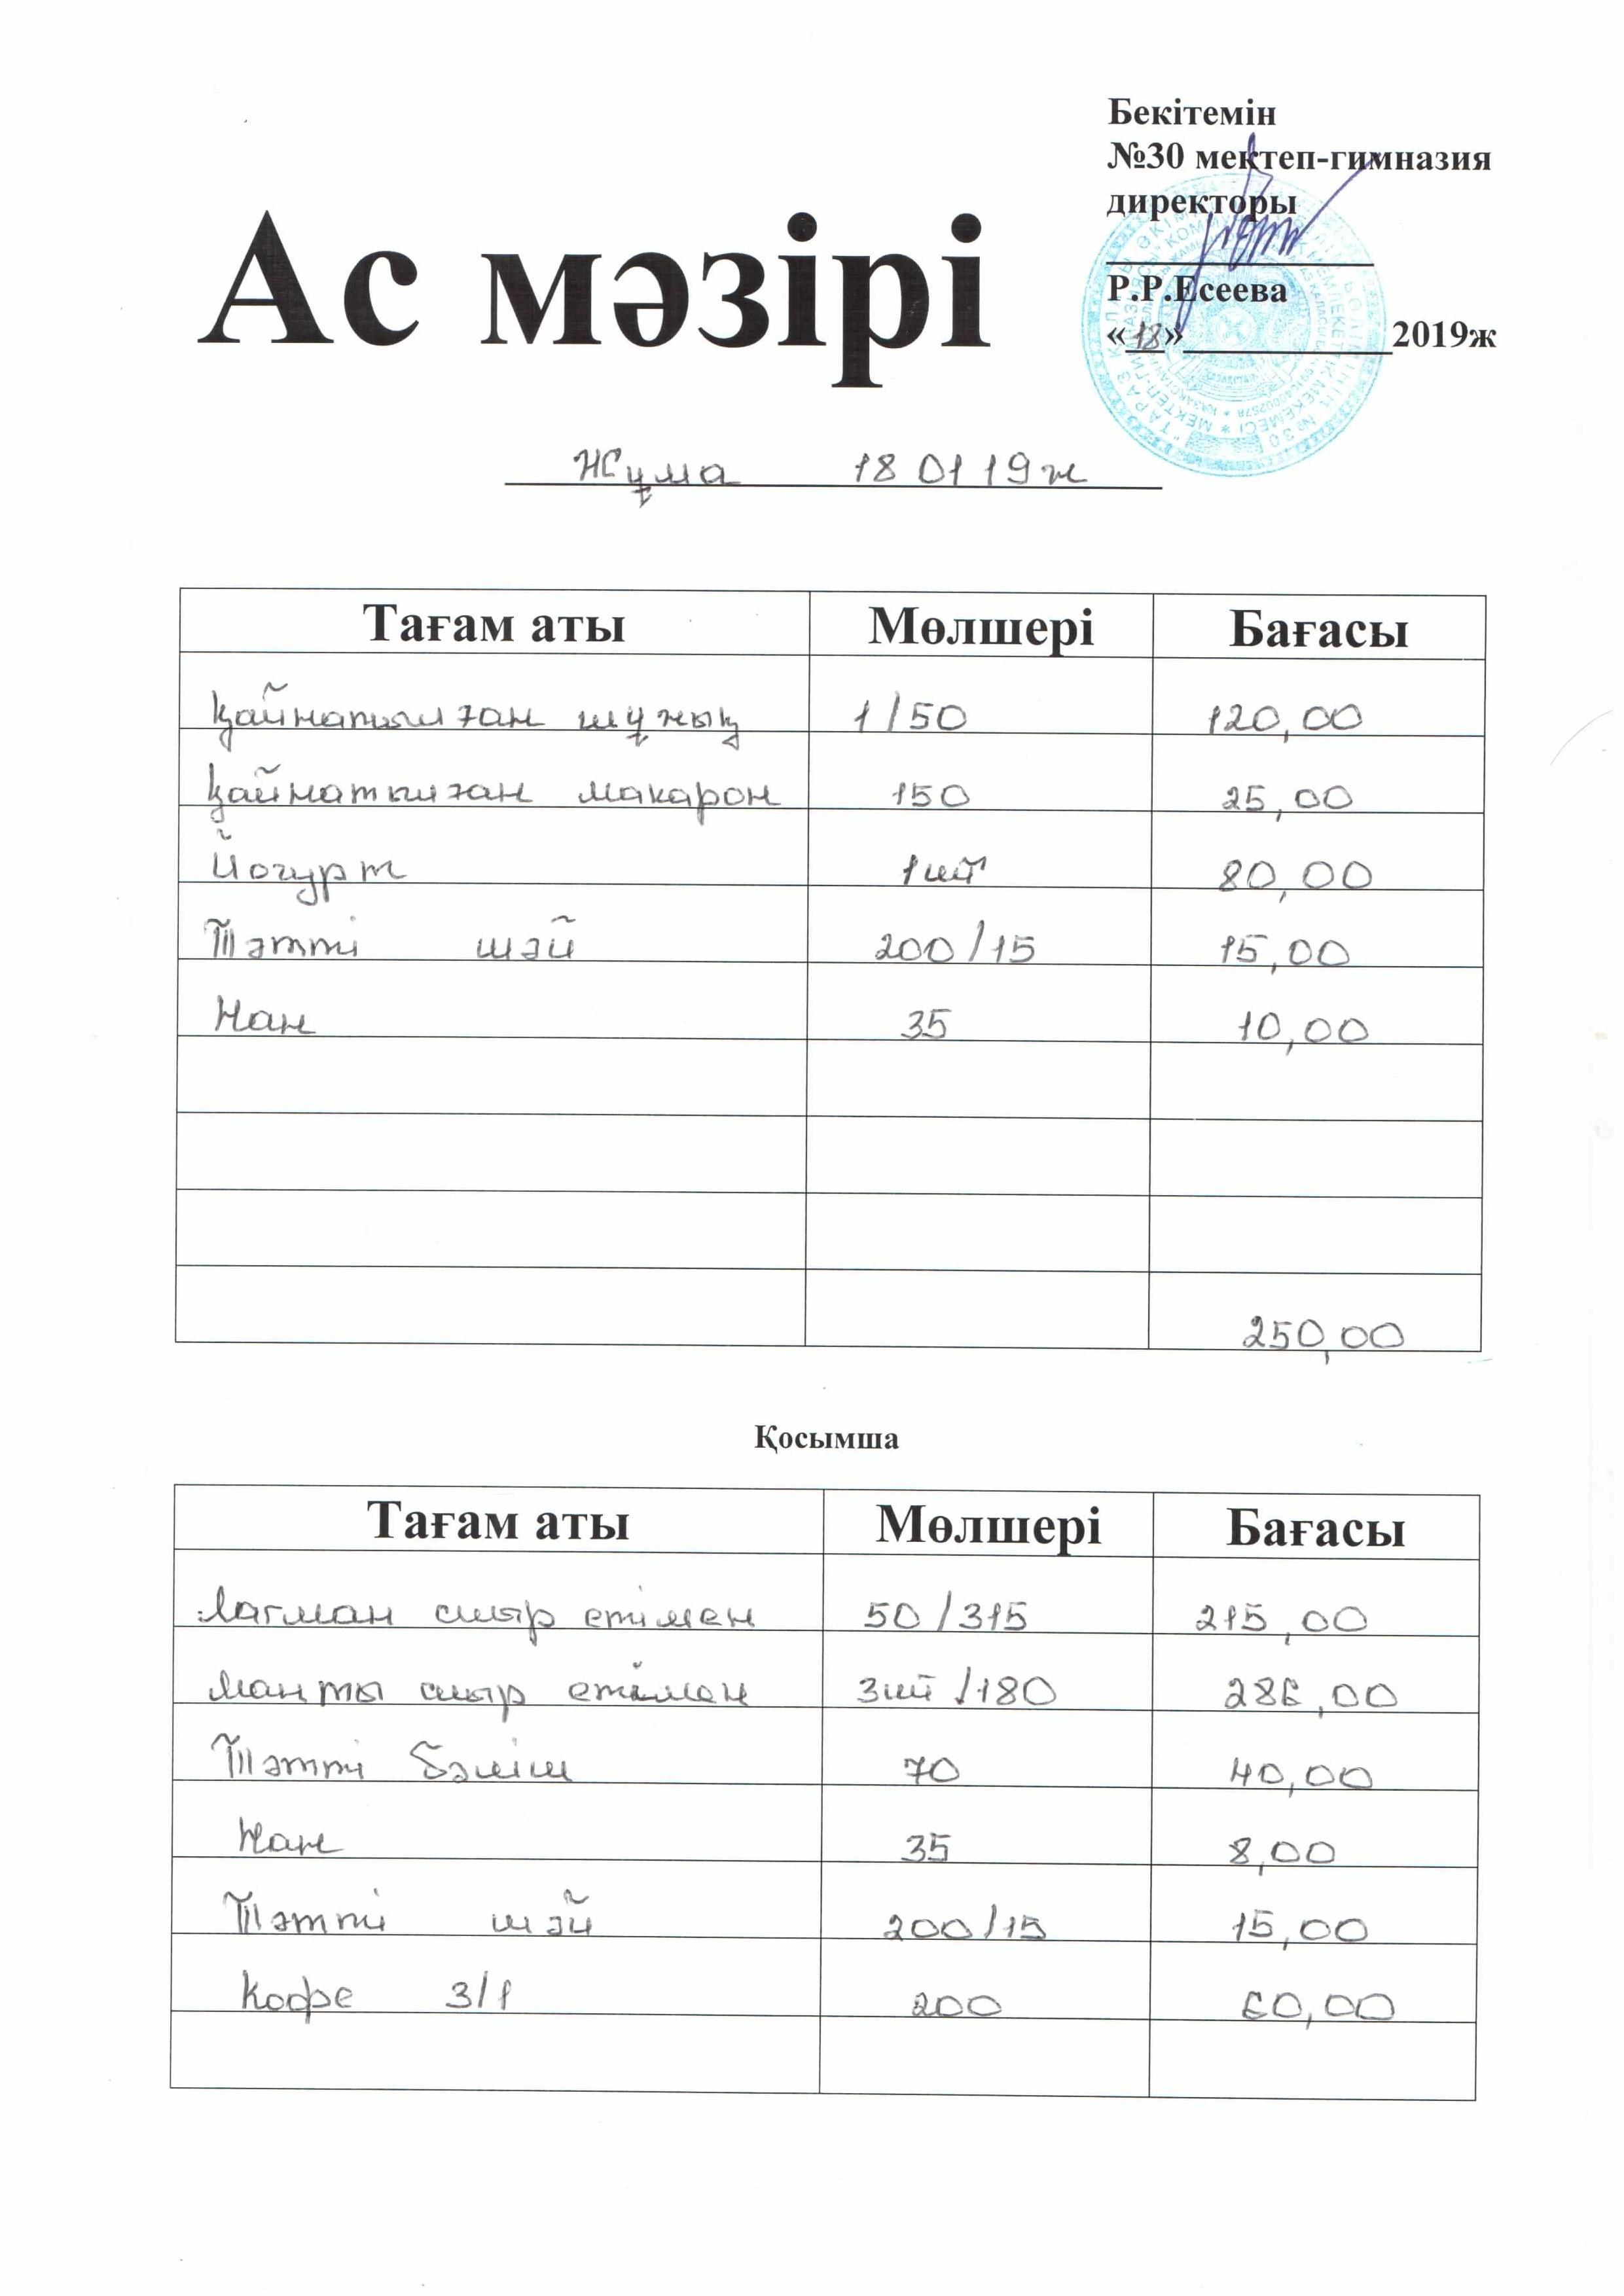 Бекітемін
№30 мектеп-гимназия
директоры
Р.Р.Есеева
«18»____________2019ж
Ас мәзірі
Жұма 18 01 19ж
Тағам аты Мөлшері Бағасы
Қайнатылған шұжық 1/50 120,00
Қайнатылған макарон 150 25,00
Йогурт 1шт 80,00
Тәтті шәй 200/15 15,00
Нан 35 10,00
250,00
Қосымша
Тағам аты Мөлшері Бағасы
Лагман сиыр етімен 50/315 215,00
манты сиыр етімен 3шт/180 286,00
Тәтті бәліш 70 40,00
Нан 35 8,00
Тәтті шәй 200/15 15,00
Кофе 3/1 200 60,00